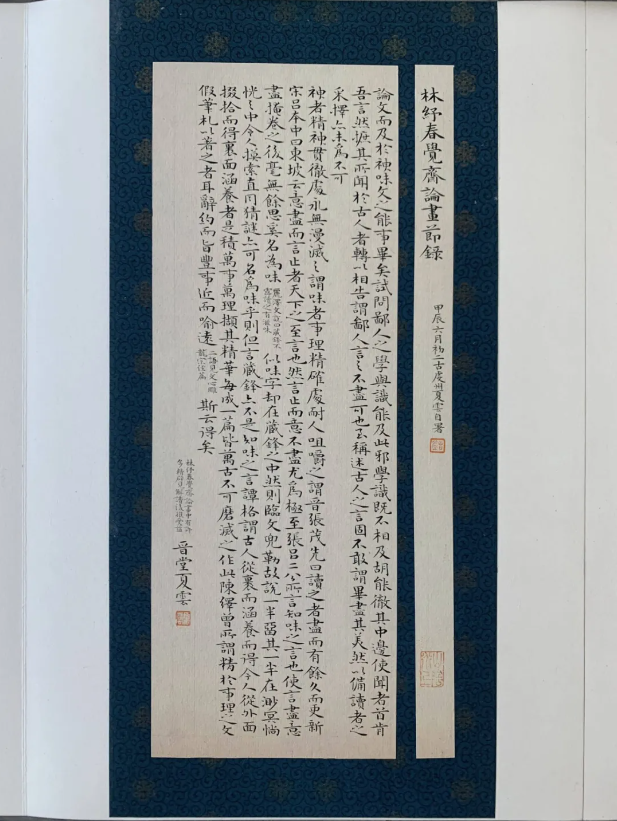 林紓春覺齋論畫節錄
甲辰六月初二古處州夏雲自署
論文而及於神味文之能事畢矣試問鄙人之學與識能及此邪學識既不相及胡能徹其中邊使聞者首肯
吾言然摭其所聞於古人者轉以相告謂鄙人言之不盡可也至稱述古人之言固不敢謂畢盡其美然以備讀者之
采擇亦未為不可
神者精神貫徹處永無漫滅之謂味者事理精確處耐人咀嚼之謂晉張茂先曰讀之者盡而有餘久而更新
宋呂本中曰東坡云意盡而言止者天下之至言也然言止而意不盡尤為極至張呂二公所言知味之言也使言盡意
盡掩卷之後毫無餘思奚名為味 似味字却在藏鋒之中然則臨文兜勒故說一半留其一半在渺冥惝
恍之中令人摸索直同猜謎亦可名為味乎則但言藏鋒亦不是知味之言譚格謂古人從裏面涵養而得今人從外面
掇拾而得裏面涵養者是積萬事萬理擷其精華每成一篇皆萬古不可磨滅之作此陳繹曾所謂精於事理之文
假筆札以著之者耳辭約而旨豐事近而喻遠 二語見文心雕龍宗經篇 斯云得矣
晉堂夏雲